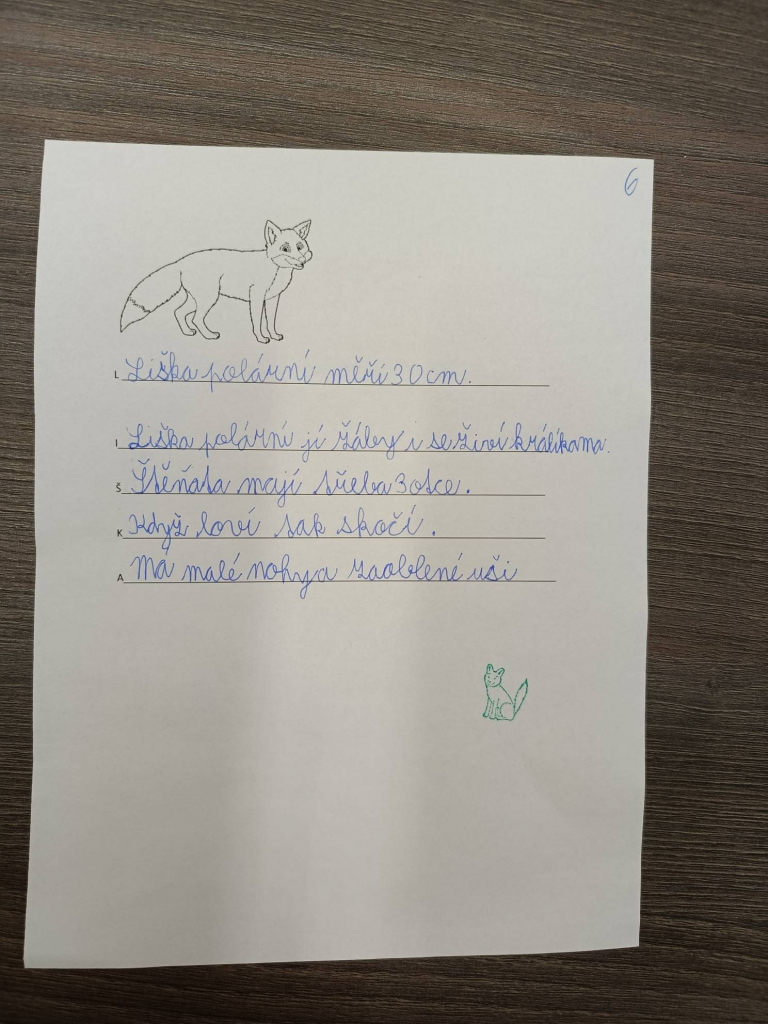 6
L Liška polární měří 30cm.
I Liška polární jí žáby i se živí králíkama.
Š Štěňata mají třeba 3 otce.
K Když loví tak skočí.
A Má malé nohy a zaoblené uši